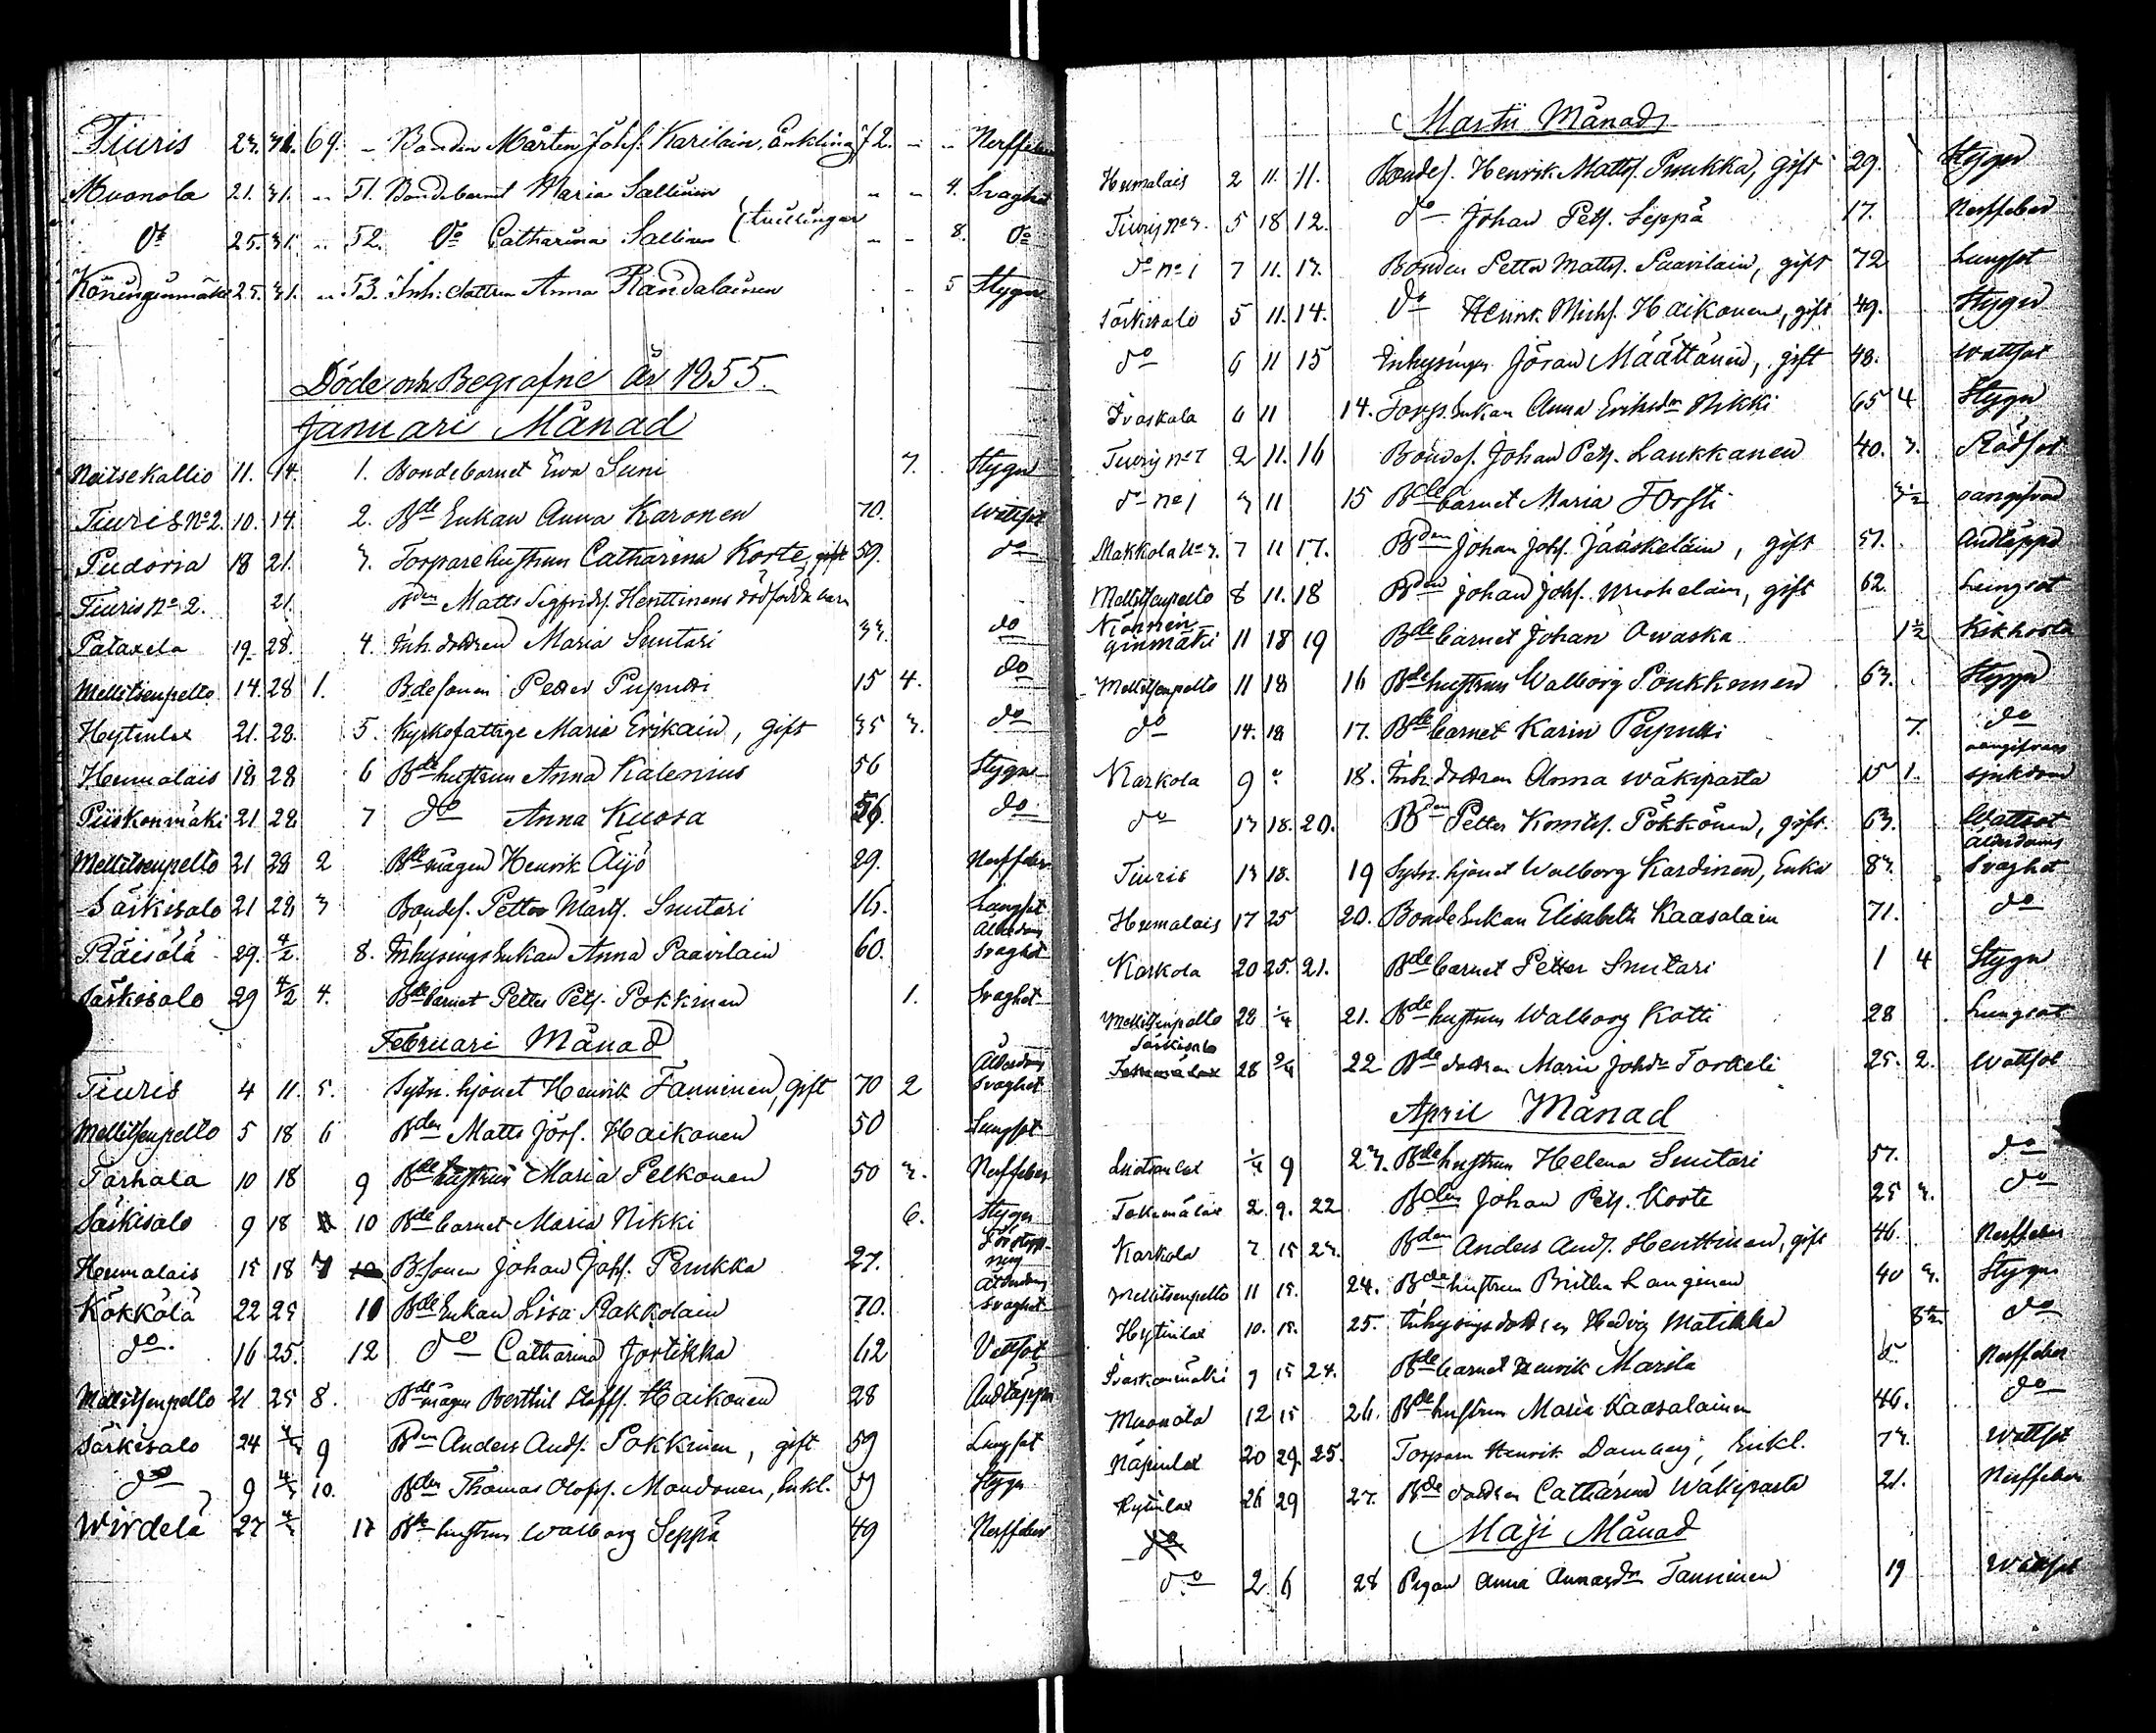 Tiuris 23. 31. 69. - Bonden Mårten Johs. Karilain, Änkling 72. - - Nerffeber
Kuonola 21. 31. - 51. Bondebarnet Maria Sallinen - - 4. Svaghet
do 25. 31. - 52. do Catharina Sallinen (tvillingar - - 8. do
25. 31. - 53. Inh. dottren Anna Randalainen - 5 Stygn
Döde och Begrafne år 1855.
Januari Månad
Naitsekallio 11. 14. 1. Bondebarnet Ewa Suni 7. Stygn
Tiuris No 2. 10. 14. 2. Bde Enkan Anna Karonen 70. Wattsot
Pudoria 18 21. 3. Torparehustrun Catharina Korte, gift 59. do
Tiuris No 2. 21. Bden Matts Sigfridss. Henttinens dödfödde barn
Palaxela 19. 28. 4. Inh. dottren Maria Smitari 33. do
Mellitsenpelto 14. 28 1. Bdesonen Petter Pupputti 15 4. do
Heytinlax 21. 28. 5. Kyrkofattige Maria Erikain, gift 35 3. do
Heumalais 18 28 6 Bde hustrun Anna Kalenius 56 Stygn
Piiskonmäki 21 28 7 do Anna Kuosa 56. do
Mellitsenpelto 21 28 2 Bde mågen Henrik Äijö 29. Nerffeber
Särkisalo 21 28 3 Bondes. Petter Märts. Smitari 16. Lungsot
Räisälä 29. 4/2. 8. Inhysings Enkan Anna Paavilain 60. Ålderdoms Svaghet
Särkisalo 29 4/2 4. Bdebarnet Petter Pets. Pokkinen 1. Svaghet
Februari Månad
Tiuris 4 11. 5. Sytn. hjonet Henrik Tanninen, gift 70 2 Ålderdoms Svaghet
Mellitsenpelto 5 18 6 Bden Matts Jörs. Haikonen 50 Lungsot
Tarhala 10 18 9 Bde hustrun Maria Pelkonen 50 3. Nerffeber
Särkisalo 9 18 10 Bde barnet Maria Nikki 6. Stygn
Heumalais 15 18 7 B-sonen Johan Johs. Penkka 27. Förstoppning
Kökkölä 22 25 11 Bde Enkan Lisa Rakkolain 70. Ålderdoms Svaghet
do 16 25. 12 do Catharina Jortikka 62 Vattsot
Mellitsenpelto 21 25 8. Bde mågen Berthil Staffs. Haikonen 28 Andtäppa
Särkisalo 24 4/3 9 Bden Anders Ands. Pokkinen, gift 59 Lungsot
do 9 4/3 10. Bden Thomas Olofss. Mondonen, Enkl. 59 Stygn
Wirdelä 27 4/3 13 Bde hustrun Walborg Seppä 49 Nerffeber
Martii Månad
Heumalais 2 11. 11. Bondes. Henrik Matts. Penkka, gift 29. Stygn
Tiuris No 3. 5 18 12. do Johan Pets. Seppä 17. Nerffeber
do No 1 7 11. 13. Bonden Petter Matts. Paavilain, gift 72 Lungsot
Särkisalo 5 11. 14. do Henrik Michs. Haikonen, gift 49. Stygn
do 6 11 15 Inhysingen Jöran Määttänen, gift 48. Wattsot
Ivaskala 6 11 14. Torp. Enkan Anna Eriksdr Nikki 65 4 Stygn
Tiuris No 7 2 11. 16 Bondes. Johan Pets. Laukkanen 40. 3. Rödsot
do No 1 3 11 15 Bde barnet Maria Forsti 3½ oangifven
Makkola No 3. 7 11 17. Bden Johan Johs. Jääskeläin, gift 51. Andtäppa
Mellitsenpelto 8 11. 18 Bden Johan Johs. gift 62. Lungsot
Könninginmäki 11 18 19 Bde barnet Johan Owaska 1½ Kikhosta
Mellitsenpelto 11 18 16 Bde hustrun Walborg Poukkunen 63. Stygn
do 14. 18 17. Bde barnet Karin Pupputti 7. do
Karkola 9 18. Inh. dottren Anna Wäkiparta 15 1. oangifven sjukdom
do 13 18. 20. Bden Petter Pökkönen, gift. 63. Wattsot
Tiuris 13 18. 19 Sytn. hjonet Walborg Kardinen, Enka 83. Ålderdoms Svaghet
Heumalais 17 25 20. Bonde Enkan Elisabeth Kaasalain 71. do
Karkola 20 25. 21. Bde barnet Petter Smitari 1 4 Stygn
Mellitsenpelto 28 1/4 21. Bde hustrun Walborg Kotti 28 Lungsot
Särkisalo 28 2/4 22 Bde dottren Maria Johsdr Torkeli 25. 2. Wattsot
April Månad
1/4 9 23. Bde hustrun Helena Smitari 57. do
2. 9. 22 Bden Johan Pets. Korte 25 3. do
Karkola 7 15 23. Bden Anders Ands. Henttinen, gift 46. Nerffeber
Mellitsenpelto 11 15. 24. Bde hustrun Britha Langinen 40 3. Stygn
Heytinlax 10. 15. 25. Inhysings dottren Hedvig Matikka do
Ivaskanmäki 9 15 24. Bde barnet Henrik Marila Nerffeber
Muonola 12 15 26. Bde hustrun Maria Kaasalainen 46. do
Näpinlax 20 29. 25. Torparen Henrik Enkl. 73. Wattsot
Hytinlax 26 29 27. Bde dottren Catharina Wäkiparta 21. Nerffeber
Maji Månad
do 2 6 28 Pigan Anna Tanninen 19 Wattsot